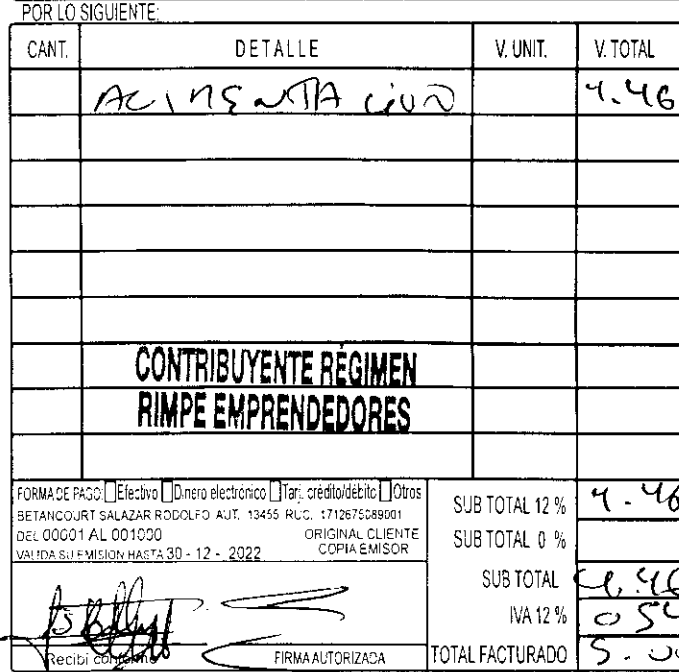 POR LO SIGUIENTE:
CANT. DETALLE V. UNIT. V. TOTAL
ALIMENTACIÓN 4.46
CONTRIBUYENTE RÉGIMEN
RIMPE EMPRENDEDORES
FORMA DE PAGO: Efectivo Dinero electrónico Tarj. crédito/débito Otros
BETANCOURT SALAZAR RODOLFO AUT. 13455 RUC. 1712675089001
DEL 00001 AL 001000 ORIGINAL CLIENTE
VALIDA SU EMISION HASTA 30 - 12 - 2022 COPIA EMISOR
SUB TOTAL 12 % 4.46
SUB TOTAL 0 %
SUB TOTAL 4.46
IVA 12 % 0 54
Recibi conforme FIRMA AUTORIZADA TOTAL FACTURADO 5.00